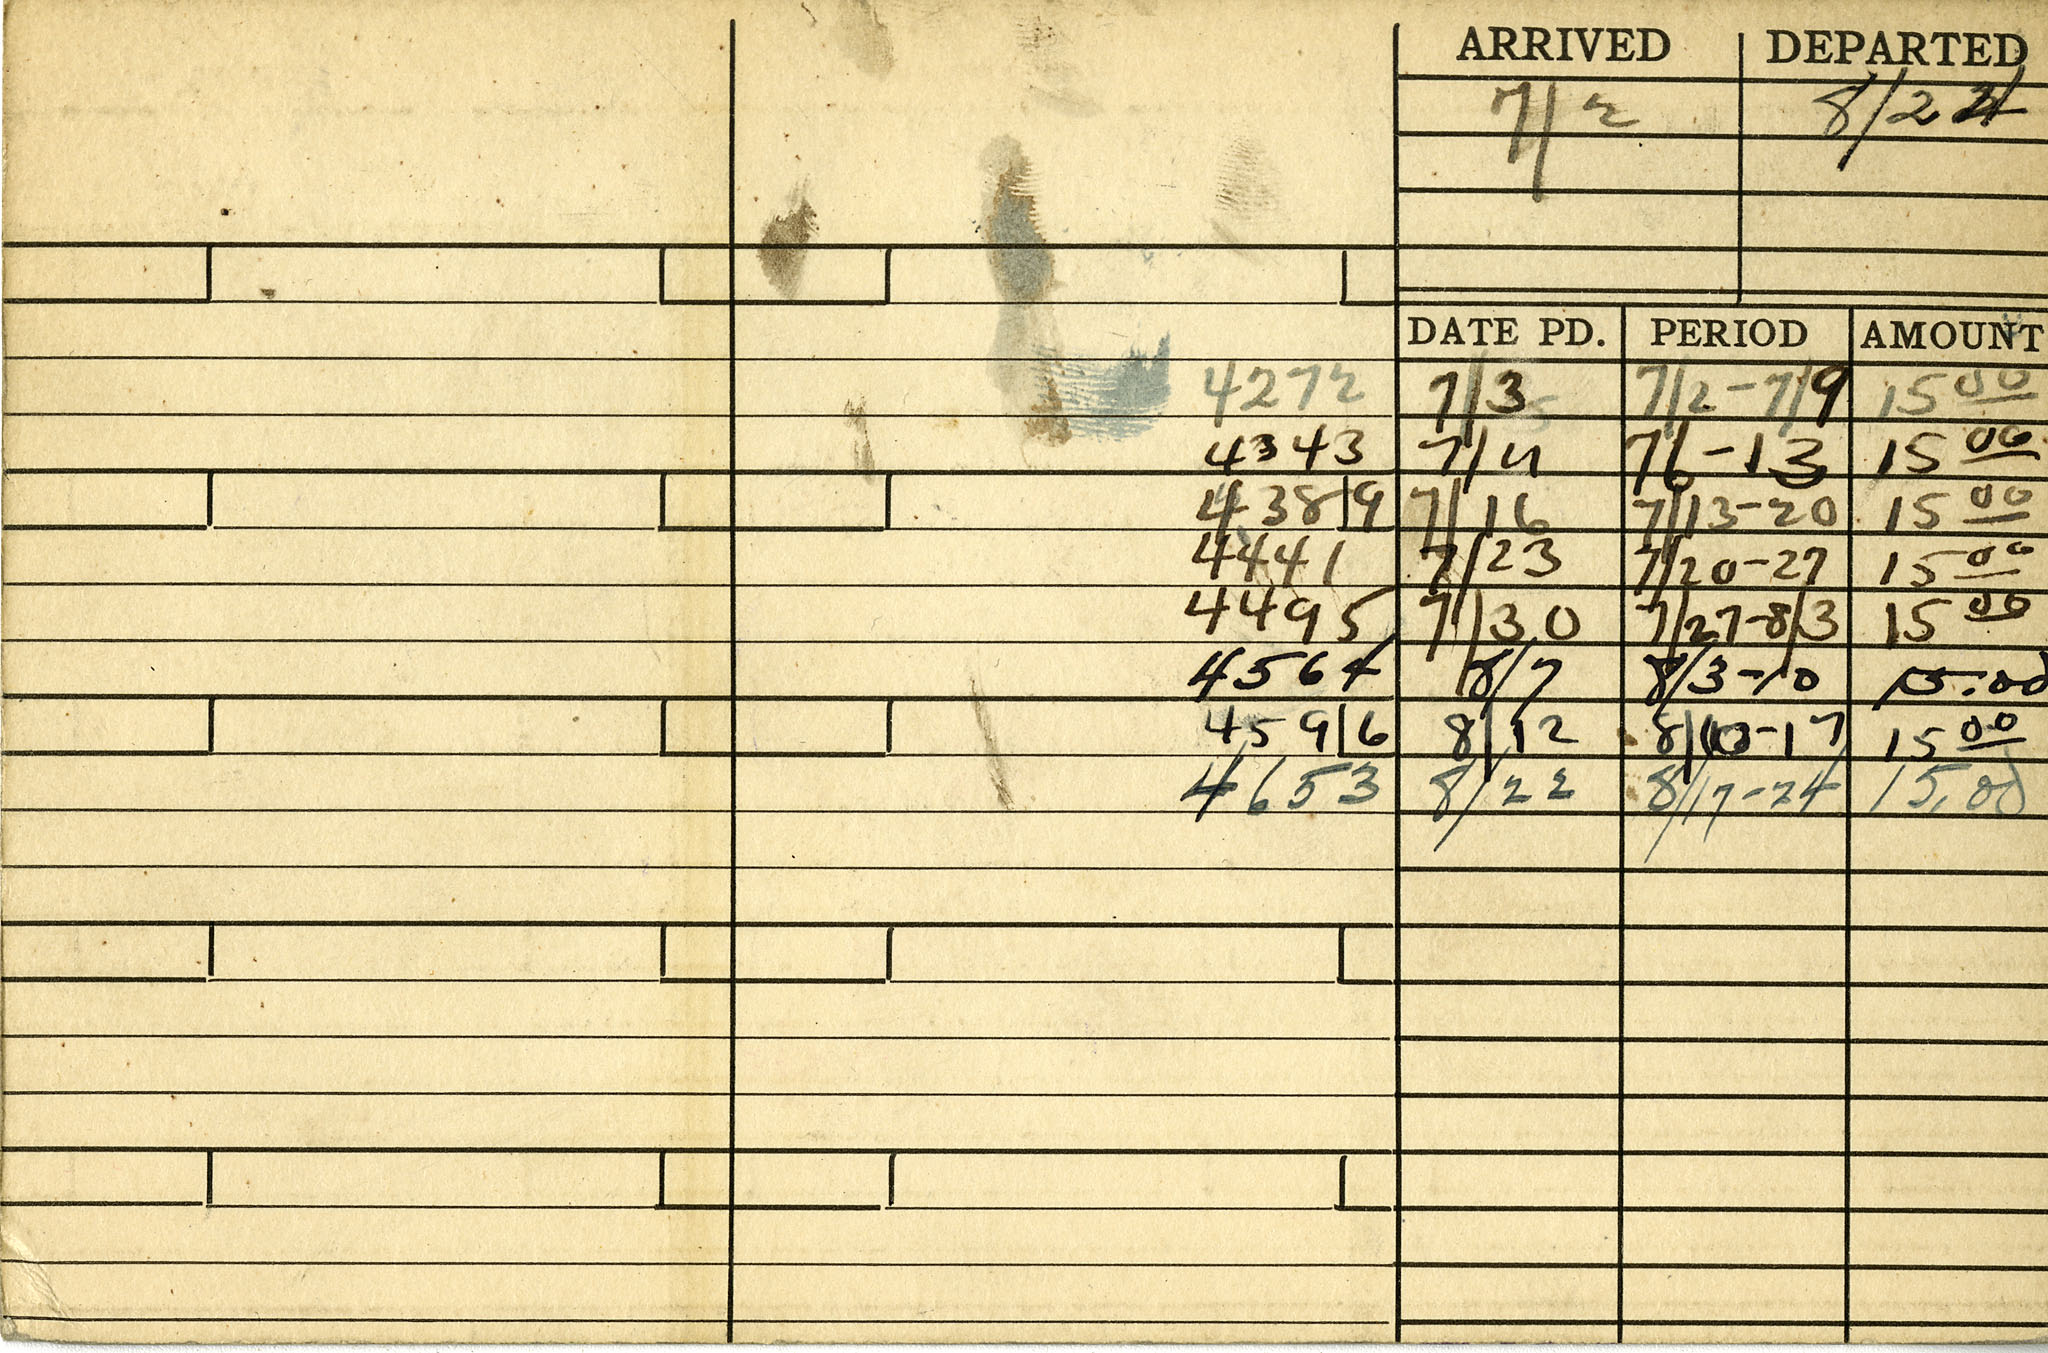 ARRIVED DEPARTED
7/2 8/24
DATE PD. PERIOD AMOUNT
4272 7/3 7/2-7/9 15 00
4343 7/11 7/6-13 15 00
4389 7/16 7/13-20 15 00
4441 7/23 7/20-27 15 00
4495 7/30 7/27-8/3 15 00
4564 8/7 8/3-10 15.00
4596 8/12 8/10-17 15 00
4653 8/22 8/17-24 15.00